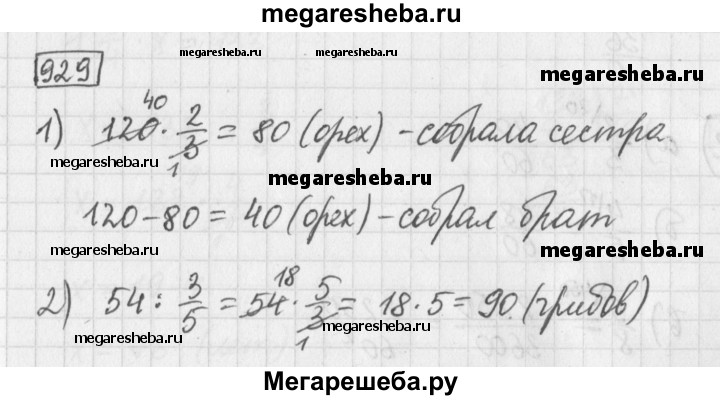 megaresheba.ru
929
megaresheba.ru megaresheba.ru
megaresheba.ru
1) 120 · 2/3 = 80 (орех) - собрала сестра
40
1
megaresheba.ru
megaresheba.ru
120 - 80 = 40 (орех) - собрал брат
megaresheba.ru
megaresheba.ru
2) 54 : 3/5 = 54 · 5/3 = 18 · 5 = 90 (грибов)
18
1
megaresheba.ru
megaresheba.ru
megaresheba.ru
Мегарешеба.ру